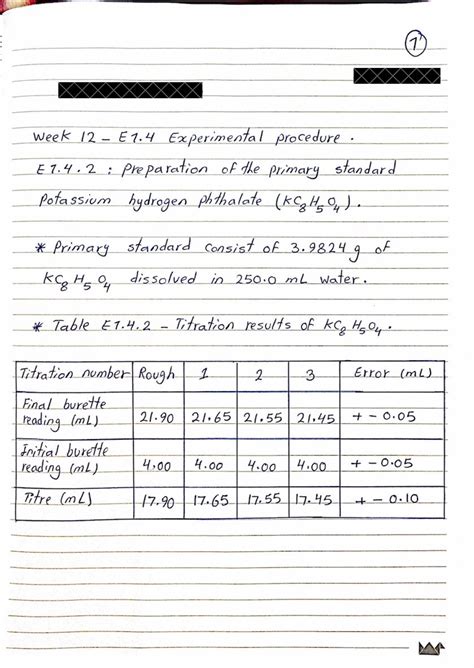 7
Week 12 - E7.4 Experimental procedure.
E7.4.2 : Preparation of the primary standard
Potassium hydrogen phthalate (KC₈H₅O₄).
* Primary standard consist of 3.9824 g of
KC₈H₅O₄ dissolved in 250.0 mL water.
* Table E7.4.2 - Titration results of KC₈H₅O₄.
Titration number Rough 1 2 3 Error (mL)
Final burette
reading (mL) 21.90 21.65 21.55 21.45 + - 0.05
Initial burette
reading (mL) 4.00 4.00 4.00 4.00 + - 0.05
Titre (mL) 17.90 17.65 17.55 17.45 + - 0.10